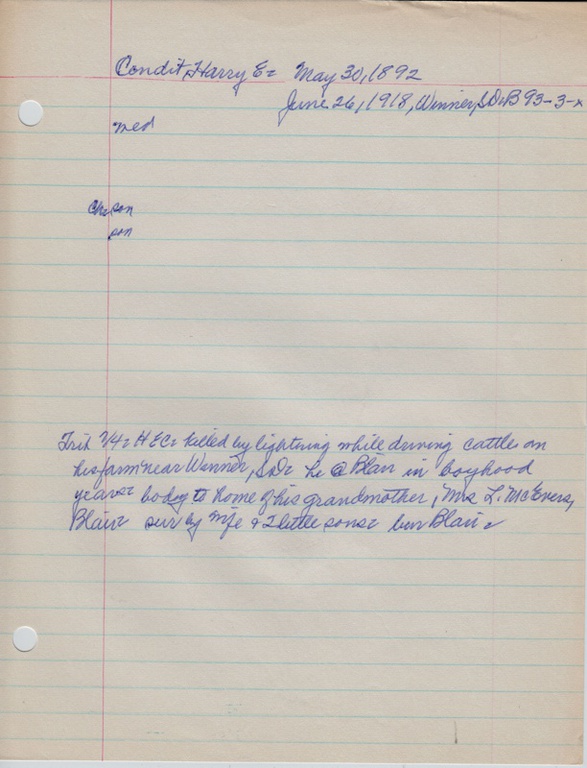 Condit, Harry E= May 30, 1892
June 26, 1918, Winner, SD=B 93-3-x
med
Ch= son
son
Trib 7/4= HEC= killed by lightning while driving cattle on
his farm near Winner, SD= he @ Blair in boyhood
years= body to home of his grandmother, Mrs L. McEvers,
Blair= sur by wife & 2 little sons= bur Blair=